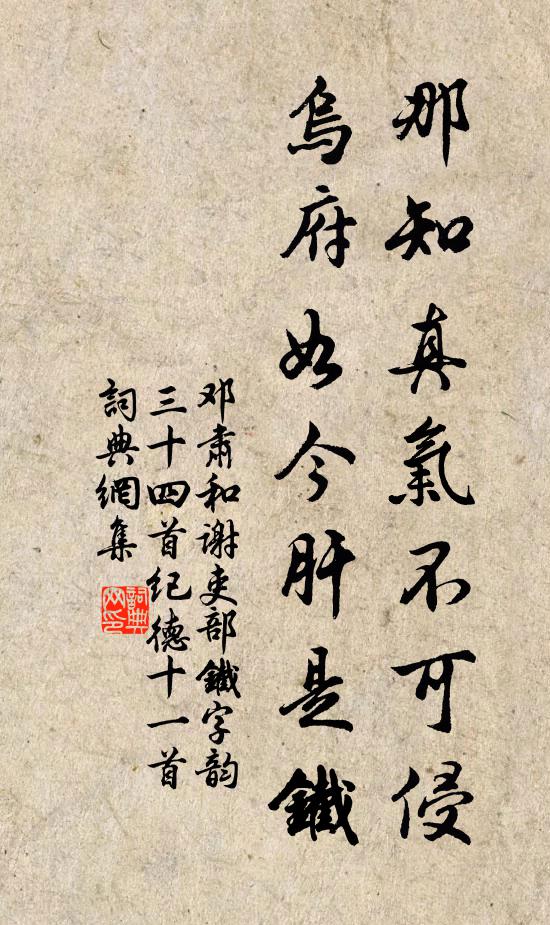 那知真氣不可侵
烏府如今肝是鐵
邓肅和谢吏部鐵字韵
三十四首纪德十一首
詞典網集
詞典
网印